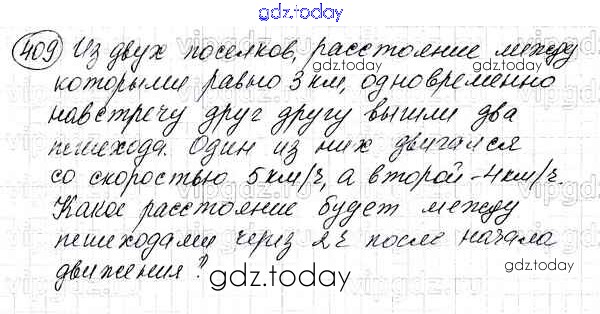 gdz.today
409 Из двух поселков, расстояние между
которыми равно 3 км, одновременно
gdz.today gdz.today
навстречу друг другу вышли два
пешехода. Один из них двигался
со скоростью 5км/ч, а второй - 4км/ч.
Какое расстояние будет между
пешеходами через 2ч после начала
движения?
gdz.today gdz.today
gdz.today